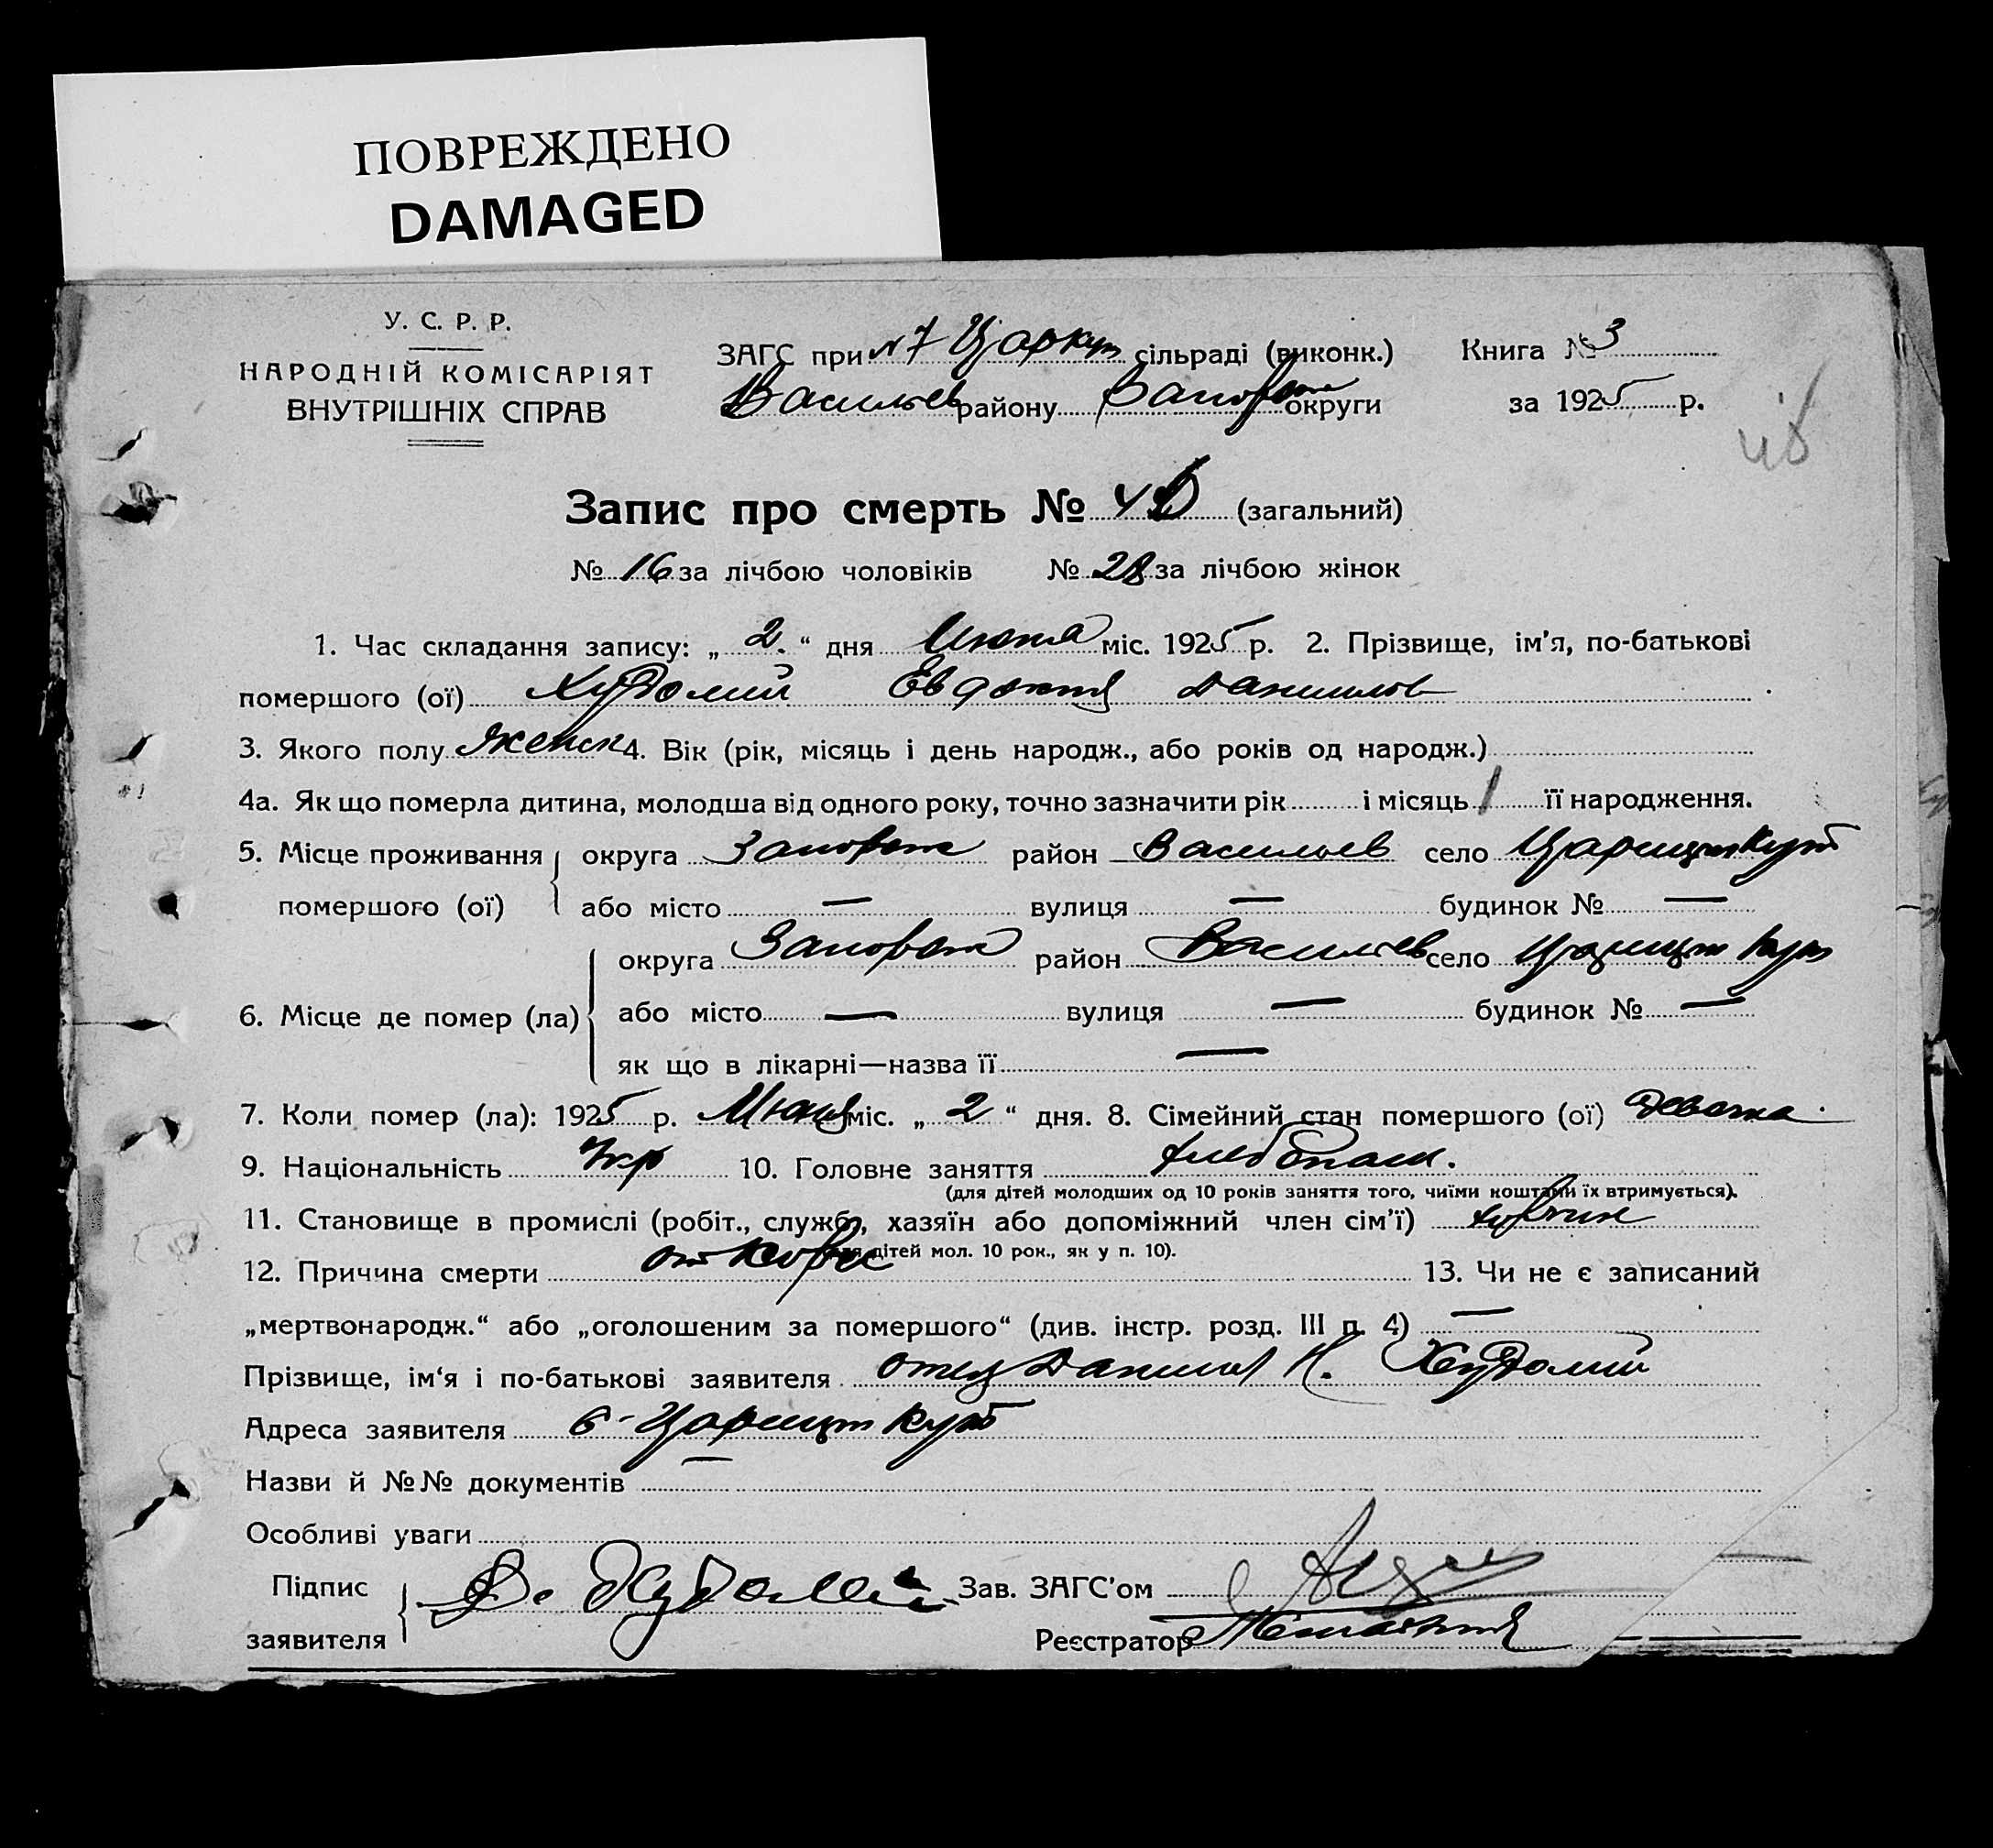 ПОВРЕЖДЕНО
DAMAGED
У. С. Р. Р.
НАРОДНІЙ КОМІСАРІЯТ
ВНУТРІШНІХ СПРАВ
ЗАГС при №7 Царкут сільраді (виконк.) Книга № 3
Васильев району Запорож округи за 1925 р.
Запис про смерть № (загальний)
№ 16 за лічбою чоловіків № 28 за лічбою жінок
1. Час складання запису: „ 2. “ дня Июня міс. 1925 р. 2. Прізвище, ім’я, по-батькові
помершого (ої) Худолий Евдокия Данилов
3. Якого полу Женск 4. Вік (рік, місяць і день народж., або років од народж.)
4а. Як що померла дитина, молодша від одного року, точно зазначити рік і місяць 1 її народження.
5. Місце проживання помершого (ої) округа Запорож район Васильев село Царицынкут
або місто — вулиця — будинок № —
6. Місце де помер (ла) округа Запорож район Васильев село Царицын кут
або місто — вулиця — будинок № —
як що в лікарні—назва її —
7. Коли помер (ла): 1925 р. Июня міс. „ 2 “ дня. 8. Сімейний стан помершого (ої)
9. Національність Укр 10. Головне заняття хлебопаш.
(для дітей молодших од 10 років заняття того, чиїми коштами їх втримується).
11. Становище в промислі (робіт., служб., хазяїн або допоміжний член сім’ї)
(для дітей мол. 10 рок., як у п. 10).
12. Причина смерти от кори 13. Чи не є записаний
„мертвонародж.“ або „оголошеним за помершого“ (див. інстр. розд. III п. 4) —
Прізвище, ім‘я і по-батькові заявителя отец Данил Н. Худолий
Адреса заявителя с. Царицын кут
Назви й №№ документів —
Особливі уваги
Підпис заявителя Д. Худолий Зав. ЗАГС’ом
Реєстратор